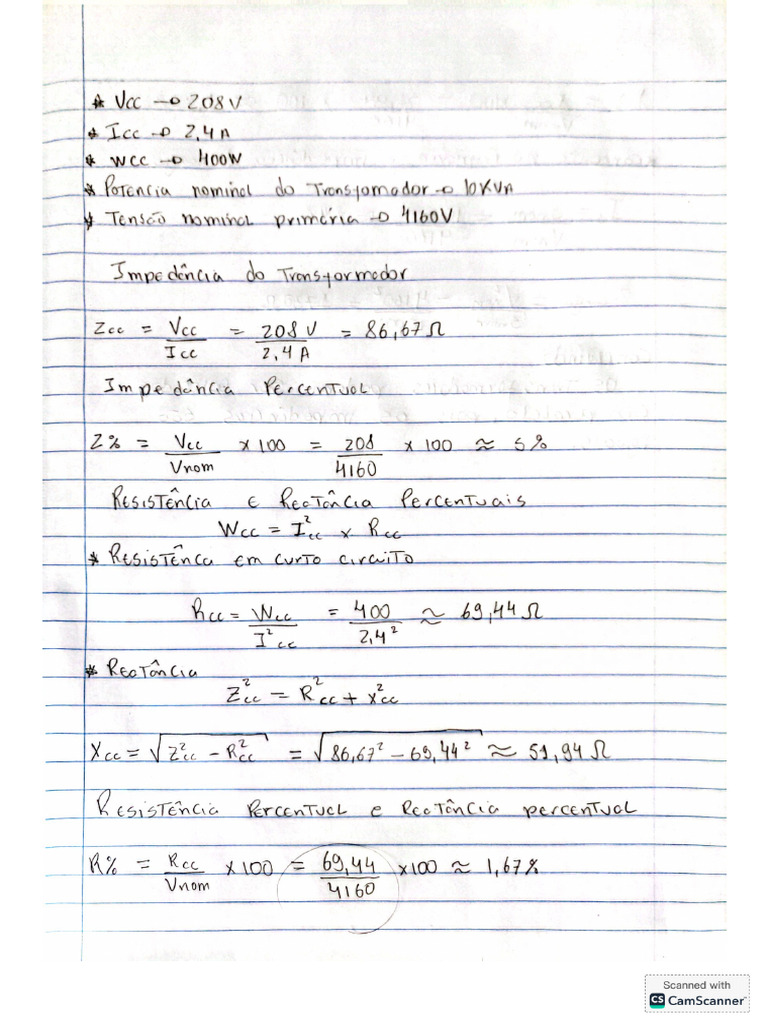 * Vcc → 208V
* Icc → 2,4A
* Wcc → 400W
* Potencia nominal do Transformador → 10KVA
* Tensão nominal primária → 4160V
Impedância do Transformador
Zcc = Vcc/Icc = 208V/2,4A = 86,67Ω
Impedância Percentual
Z% = Vcc/Vnom x 100 = 208/4160 x 100 ≈ 5%
Resistência e Reatância Percentuais
Wcc = I²cc x Rcc
* Resistênca em curto circuito
Rcc = Wcc/I²cc = 400/2,4² ≈ 69,44Ω
* Reatância
Z²cc = R²cc + x²cc
Xcc = √Z²cc - R²cc = √86,67² - 69,44² ≈ 51,94Ω
Resistência Percentual e Reatância percentual
R% = Rcc/Vnom x 100 = 69,44/4160 x 100 ≈ 1,67%
Scanned with
CS CamScanner